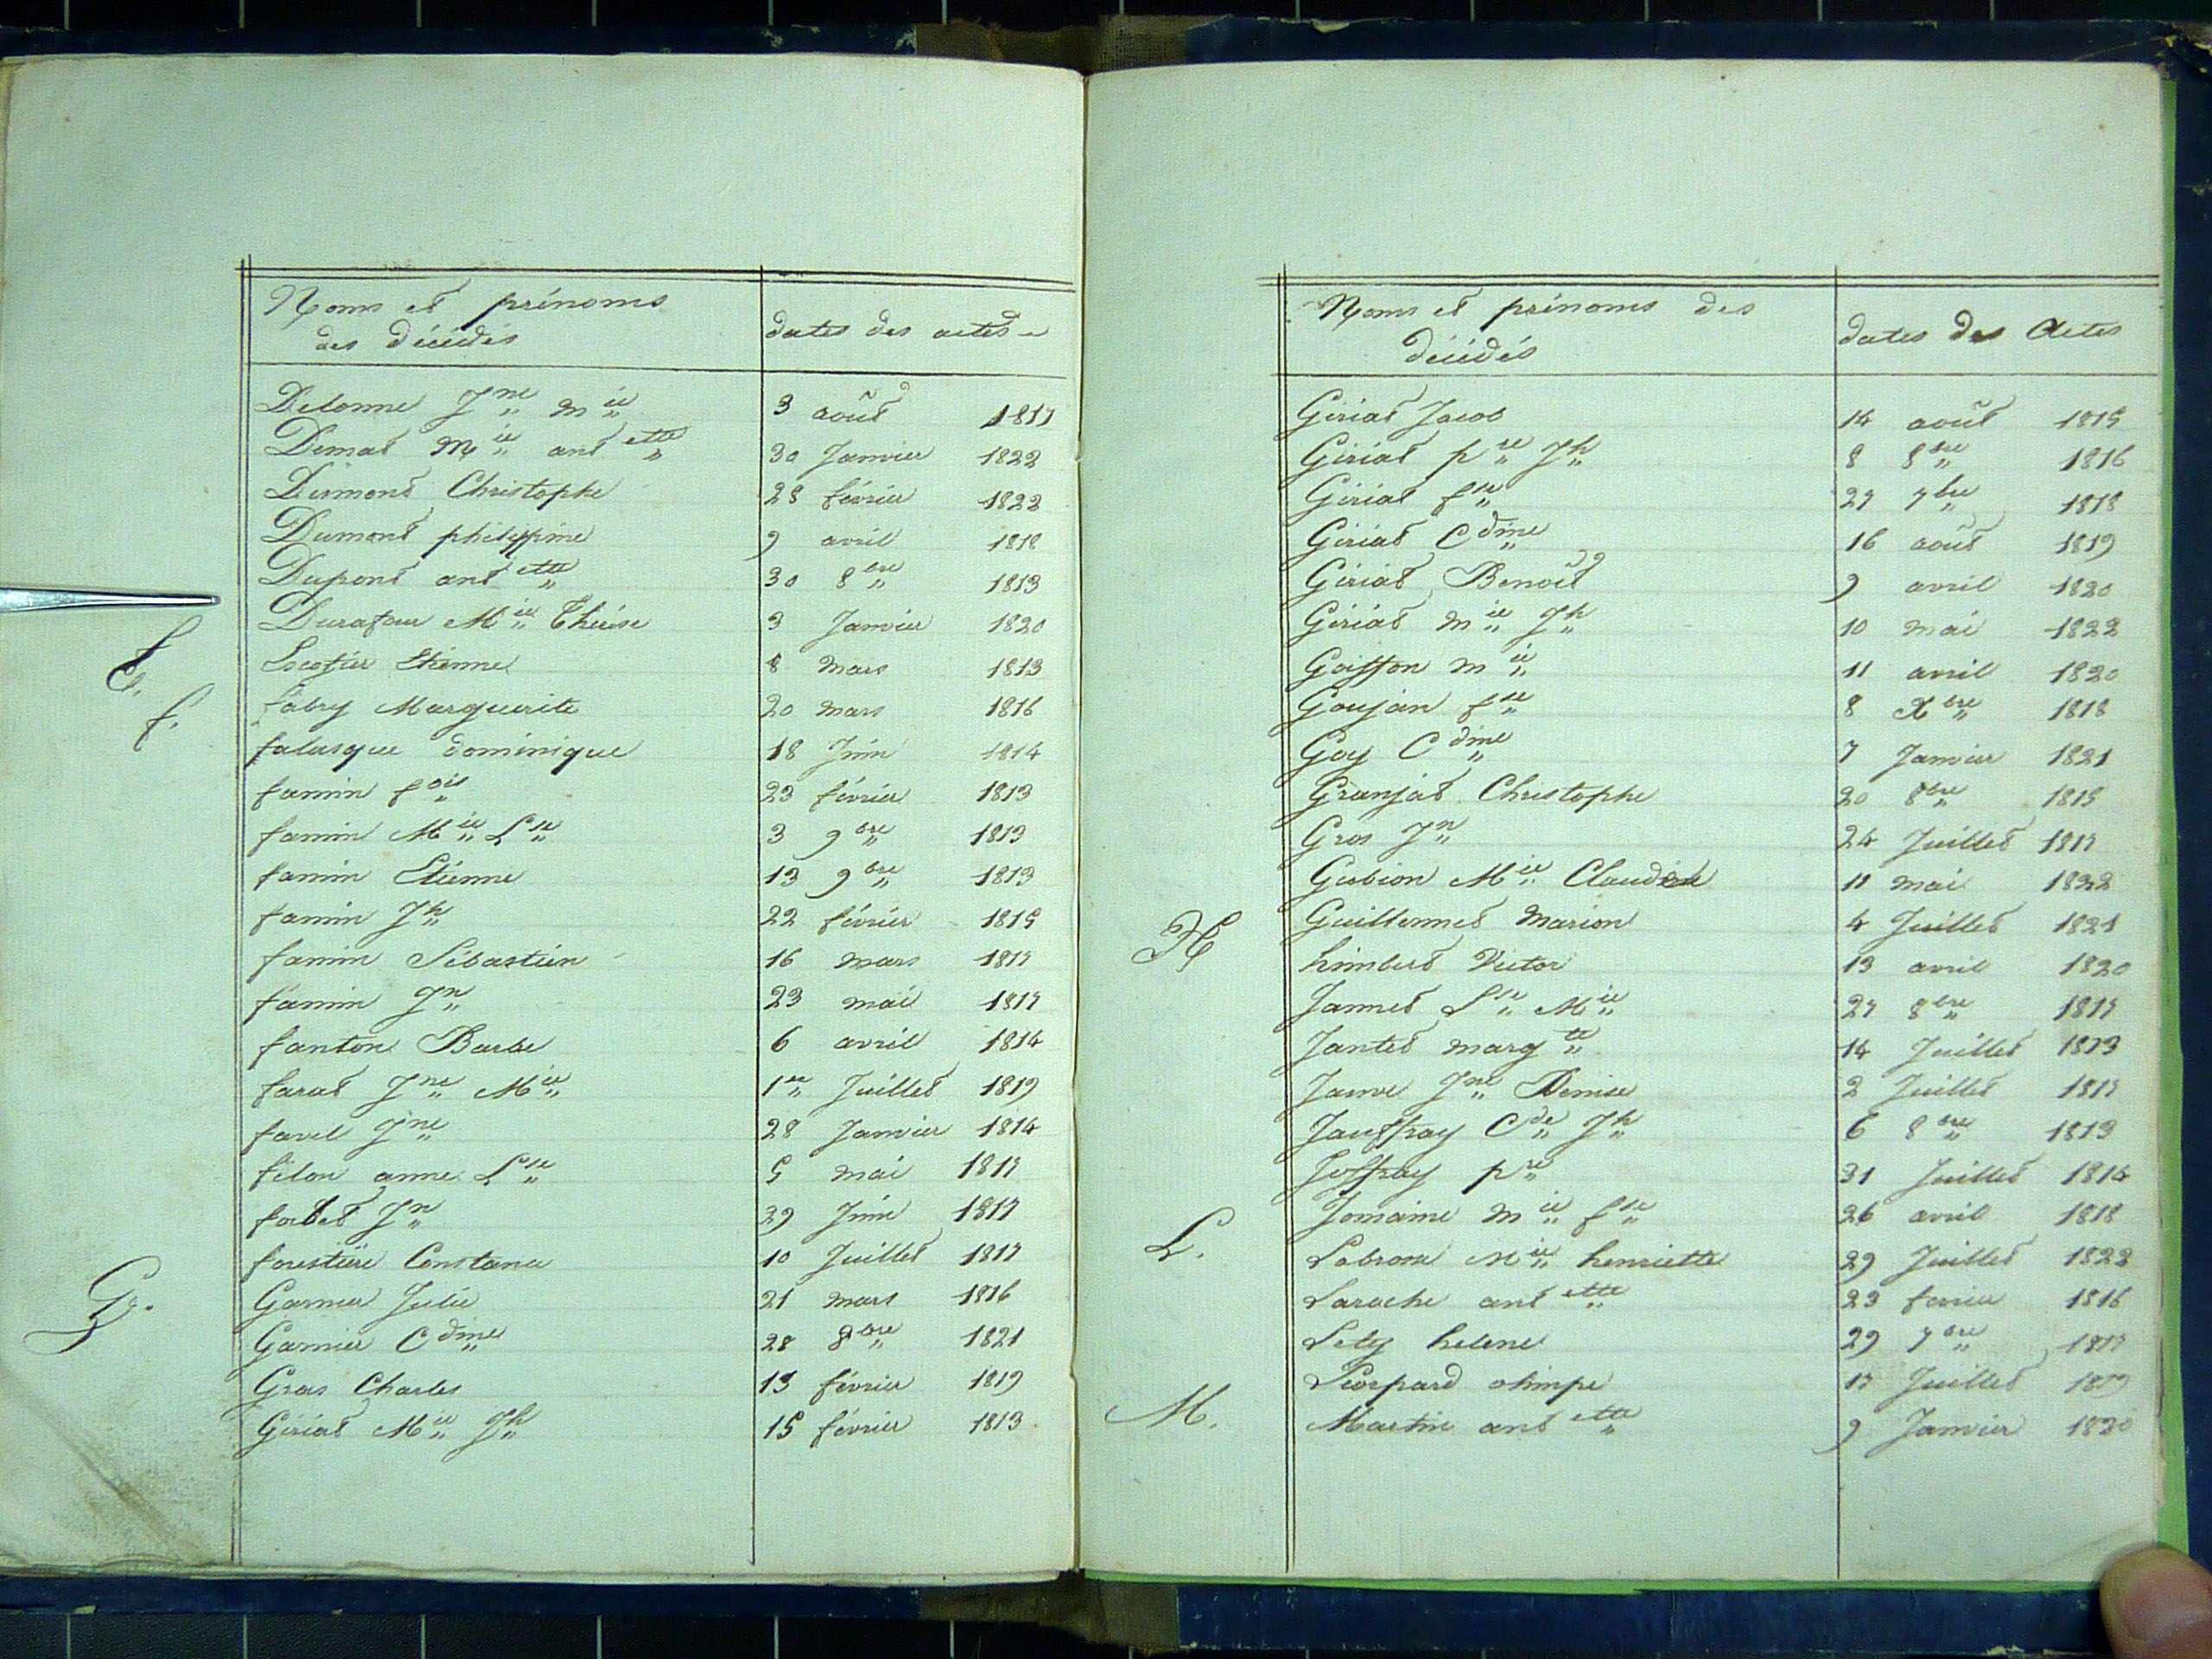 Noms et prénoms
des décédés
dates des actes
Delorme Jne Mie 3 août 1817
Demat Mie antette 30 Janvier 1822
Dumont Christophe 28 février 1822
Dumont philippine 9 avril 1818
Dupont antette 30 8bre 1813
Durafour Mie Thérèse 3 Janvier 1820
E.
Escofier Etienne 8 mars 1813
f.
fabry Marguerite 20 mars 1816
falusque dominique 18 Juin 1814
famin fois 23 février 1813
famin Mie Lse 3 9bre 1813
famin Etienne 13 9bre 1813
famin Jh 22 février 1815
famin Sébastien 16 mars 1817
famin Jn 23 mai 1817
fanton Barbe 6 avril 1814
farat Jne Mie 1er Juillet 1819
favel Jne 28 Janvier 1814
filon anne Lse 5 mai 1817
Jn 29 Juin 1817
forestière Constance 10 Juillet 1817
G.
Garnier Julie 21 mars 1816
Garnier Cdine 28 8bre 1821
Gras Charles 13 février 1819
Giriat Mie Jh 15 février 1813
Noms et prénoms des
décédés
dates des Actes
Giriat Jacob 14 août 1815
Giriat pre Jh 8 8bre 1816
Giriat fse 27 7bre 1818
Giriat Cdine 16 août 1819
Giriat Benoît 9 avril 1820
Giriat mie Jh 10 mai 1822
Goiffon mie 11 avril 1820
Goujon fse 8 Xbre 1818
Goy Cdine 7 Janvier 1821
Granjat Christophe 20 8bre 1815
Gros Jn 24 Juillet 1817
Gubion Mie 11 mai 1822
Guillermet Marion 4 Juillet 1821
H
himbert Victor 13 avril 1820
Jannet Lse Mie 27 8bre 1817
Jantet margte 14 Juillet 1813
Jne Denise 2 Juillet 1817
Jauffray Cde Jh 6 8bre 1813
Joffray pre 31 Juillet 1814
Jomaine mie fse 26 avril 1818
L.
Labrom Mie henriette 29 Juillet 1822
Laroche antette 23 fevrier 1816
Lety helene 29 7bre 1817
olimpe 17 Juillet 1819
M.
Martin antette 9 Janvier 1820